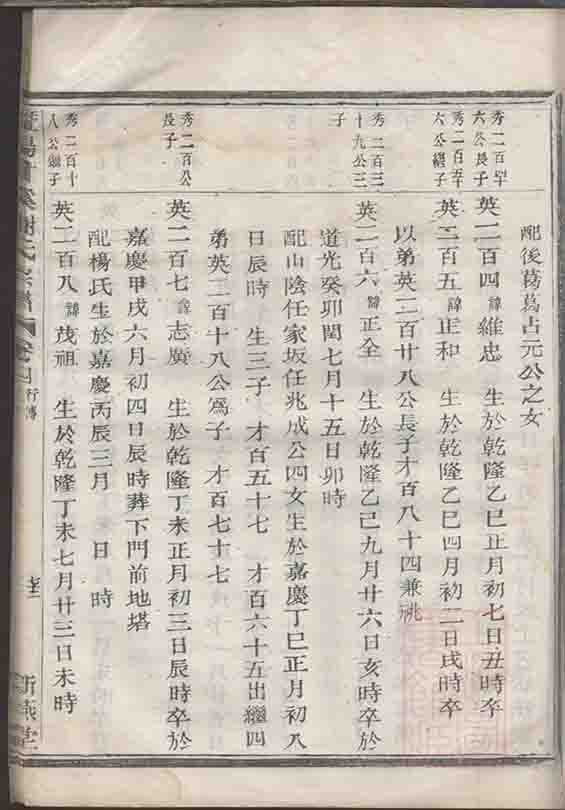 配後葛葛占元公之女
秀二百
六公長子
英二百四 諱維忠 生於乾隆乙巳正月初七日丑時卒
秀二百五十
六公繼子
英二百五 諱正和 生於乾隆乙巳四月初二日戌時卒
以弟英二百廿八公長子才百八十四兼祧
秀二百三
十九公三
子
英二百六 諱正全 生於乾隆乙巳九月廿六日亥時卒於
道光癸卯閏七月十五日卯時
配山陰任家坂任兆成公四女生於嘉慶丁巳正月初八
日辰時 生三子 才百五十七 才百六十五出繼四
弟英二百十八公爲子 才百七十七
秀二百公
長子
英二百七 諱志廣 生於乾隆丁未正月初三日辰時卒於
嘉慶甲戌六月初四日辰時葬下門前地塔
配楊氏生於嘉慶丙辰三月 日 時
秀二百十
八公繼子
英二百八 諱茂祖 生於乾隆丁未七月廿三日未時
氏宗譜 行傳